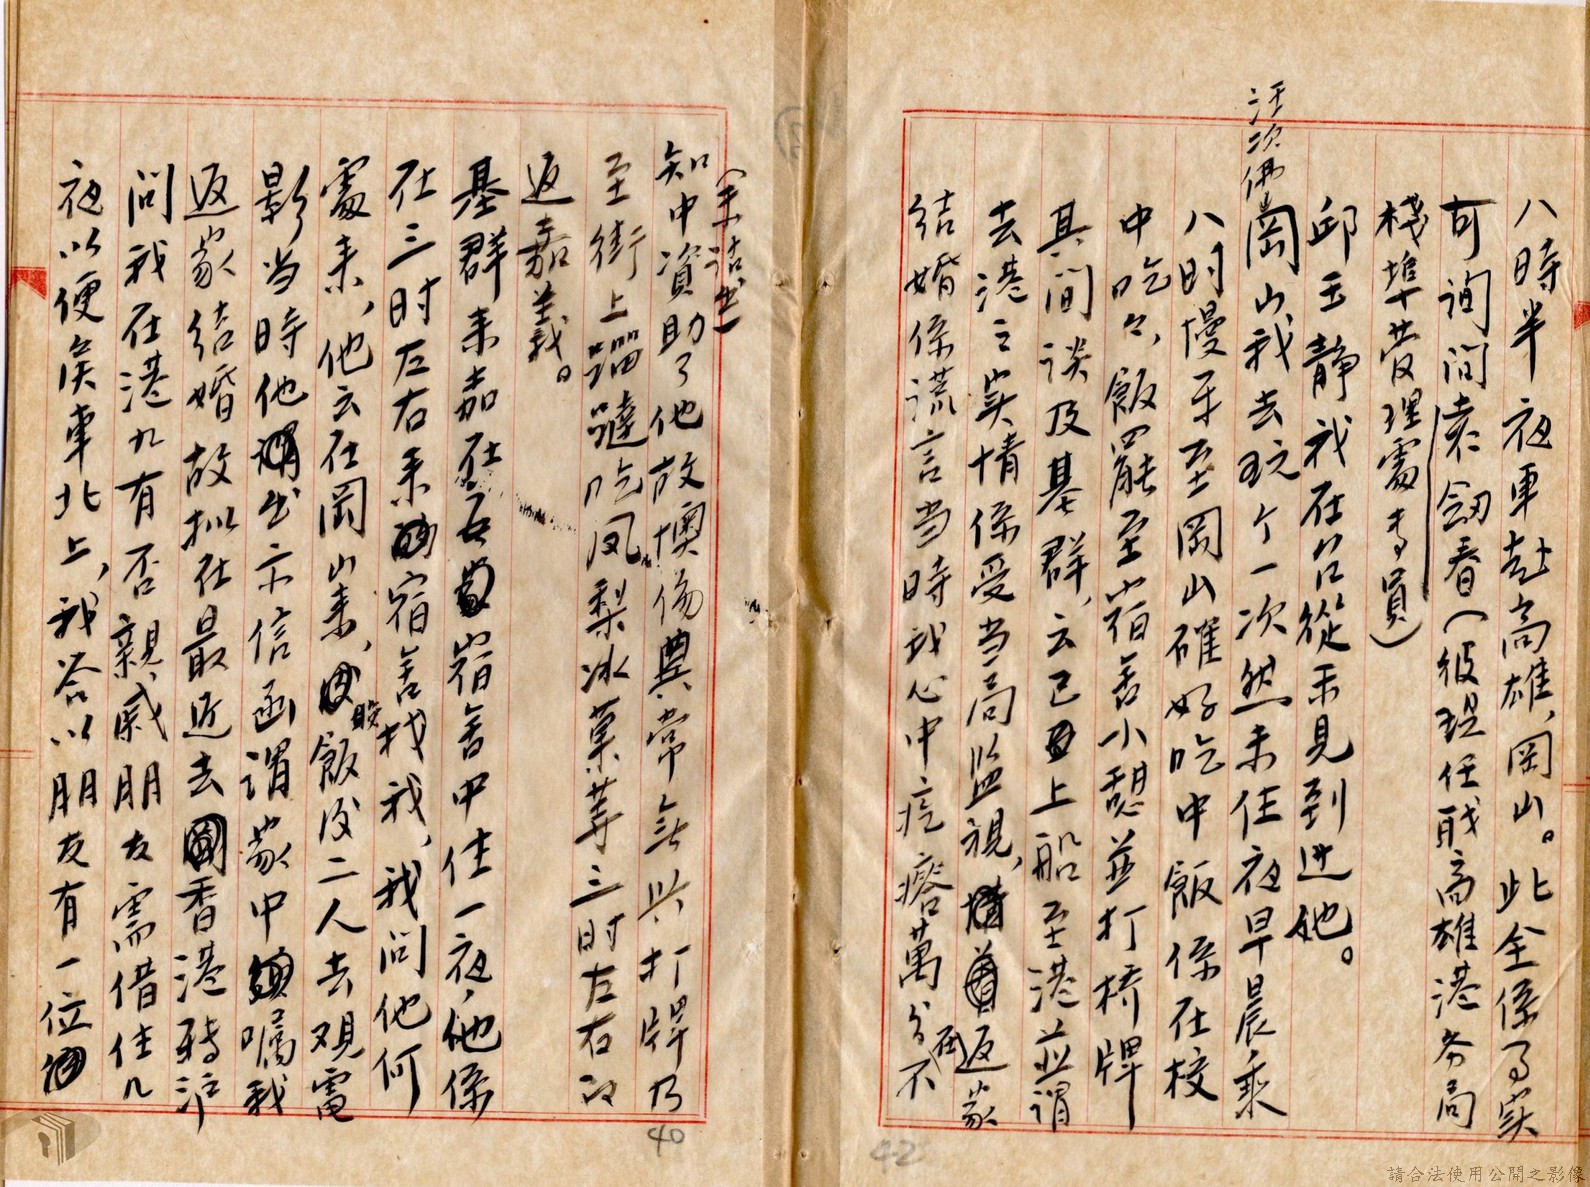 八時半夜車赴高雄,岡山。此全係事实
可詢问袁劒春(彼現任戝高雄港务局
棧埠营理處专員)
邱玉静我在台從未見到过她。
汪次佛
岡山我去玩个一次然未住夜早晨乘
八时慢车至岡山確好吃中飯係在校
中吃々,飯罷至宿舍小憩並打橋牌
其间谈及基群,云已上船至港並謂
去港之实情係受当局监視,在返家
結婚係謊言当時我心中疙瘩萬分不
(未法書)
知中資助了他故懊傷異常無兴打牌乃
至街上蹓躂吃凤梨冰菓等三时左右即
返嘉義。
基群来嘉在宿舍中住一夜,他係
在三时左右来宿舍找我,我问他何
處来,他云在岡山来,晚飯後二人去观電
影当時他出示信函謂家中嘱我
返家結婚故拟在最近去香港轉沪
问我在港九有否親戚朋友需借住几
夜以便候車北上,我答以朋友有一位
40
42
請合法使用公開之影像